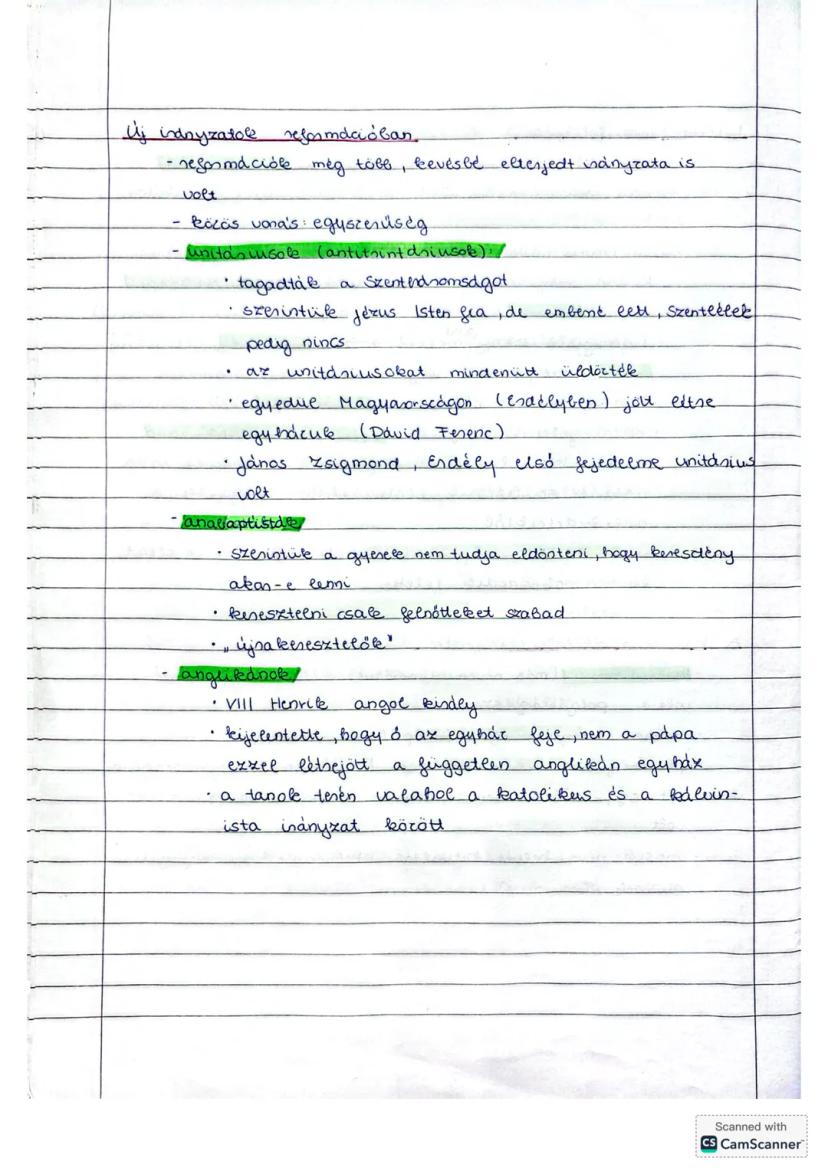 Új irányzatok reformációban
- reformációk még több, kevésbé elterjedt irányzata is
volt
- közös vonás: egyszerűség
- unitáriusok (antitrintáriusok):
• tagadták a Szentháromságot
• szerintük Jézus Isten fia, de emberré lett, Szentlélek
pedig nincs
• az unitáriusokat mindenütt üldözték
• egyedül Magyarországon (Erdélyben) jött létre
egyházuk (Dávid Ferenc)
• János Zsigmond, Erdély első fejedelme unitárius
volt
- anabaptisták
• szerintük a gyerek nem tudja eldönteni, hogy keresztény
akar-e lenni
• keresztelni csak felnőtteket szabad
• „újrakeresztelők"
- anglikánok
• VIII Henrik angol király
• kijelentette, hogy ő az egyház feje, nem a pápa
ezzel létrejött a független anglikán egyház
• a tanok terén valahol a katolikus és a kálvin-
ista irányzat között
Scanned with
CS CamScanner